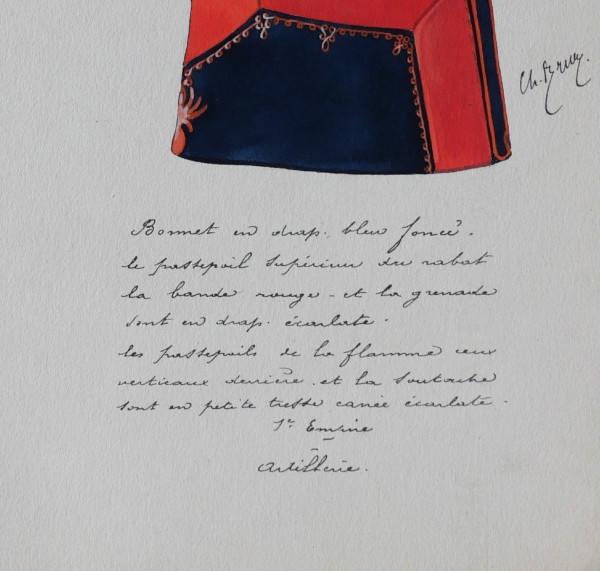 Bonnet en drap. bleu foncé.
le passepoil supérieur du rabat
la bande rouge - et la grenade
sont en drap. écarlate.
les passepoils de la flamme ceux
verticaux derrière. et la soutache
sont en petite tresse carrée écarlate.
1er Empire
Artillerie.